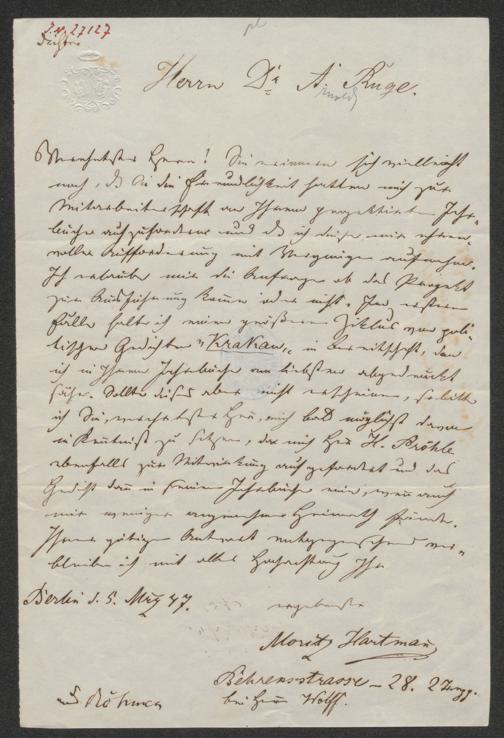 J.N. 27127
Herrn Dr A. Ruge.
Arnold
Verehrtester Herr! Sie erinnern sich vielleicht
noch, daß Sie die Freundlichkeit hatten mich zur
Mitarbeiterschaft an Ihrem projektirten Jahr-
buche aufzufordern und daß ich diese mir ehren-
volle Aufforderung mit Vergnügen aufnahm.
Ich erlaube mir die Anfrage ob das Projekt
zur Ausführung komme oder nicht. Im ersten
Falle halte ich einen größeren Ziklus von poli-
tischen Gedichten „Krakau„ in Bereitschaft, den
ich in Ihrem Jahrbuche am liebsten abgedruckt
sähe. Sollte dieses aber nicht erscheinen, so bitte
ich Sie, verehrtester Herr, mich bald möglichst davon
in Kenntniß zu setzen, da mich Herr H. Pröhle
ebenfalls zur Mitwirkung aufgefordert und das
Gedicht dann in seinem Jahrbuche eine, wenn auch
mir weniger angenehme Heimath fände.
Ihrer gütigen Antwort entgegensehend ver-
bleibe ich mit aller Hochachtung Ihr
Berlin d. 5. März 47.
ergebenster
Moritz Hartmann
Behrensstrasse – 28. 2 Trepp.
bei Herrn Wolff.
aus Böhmen